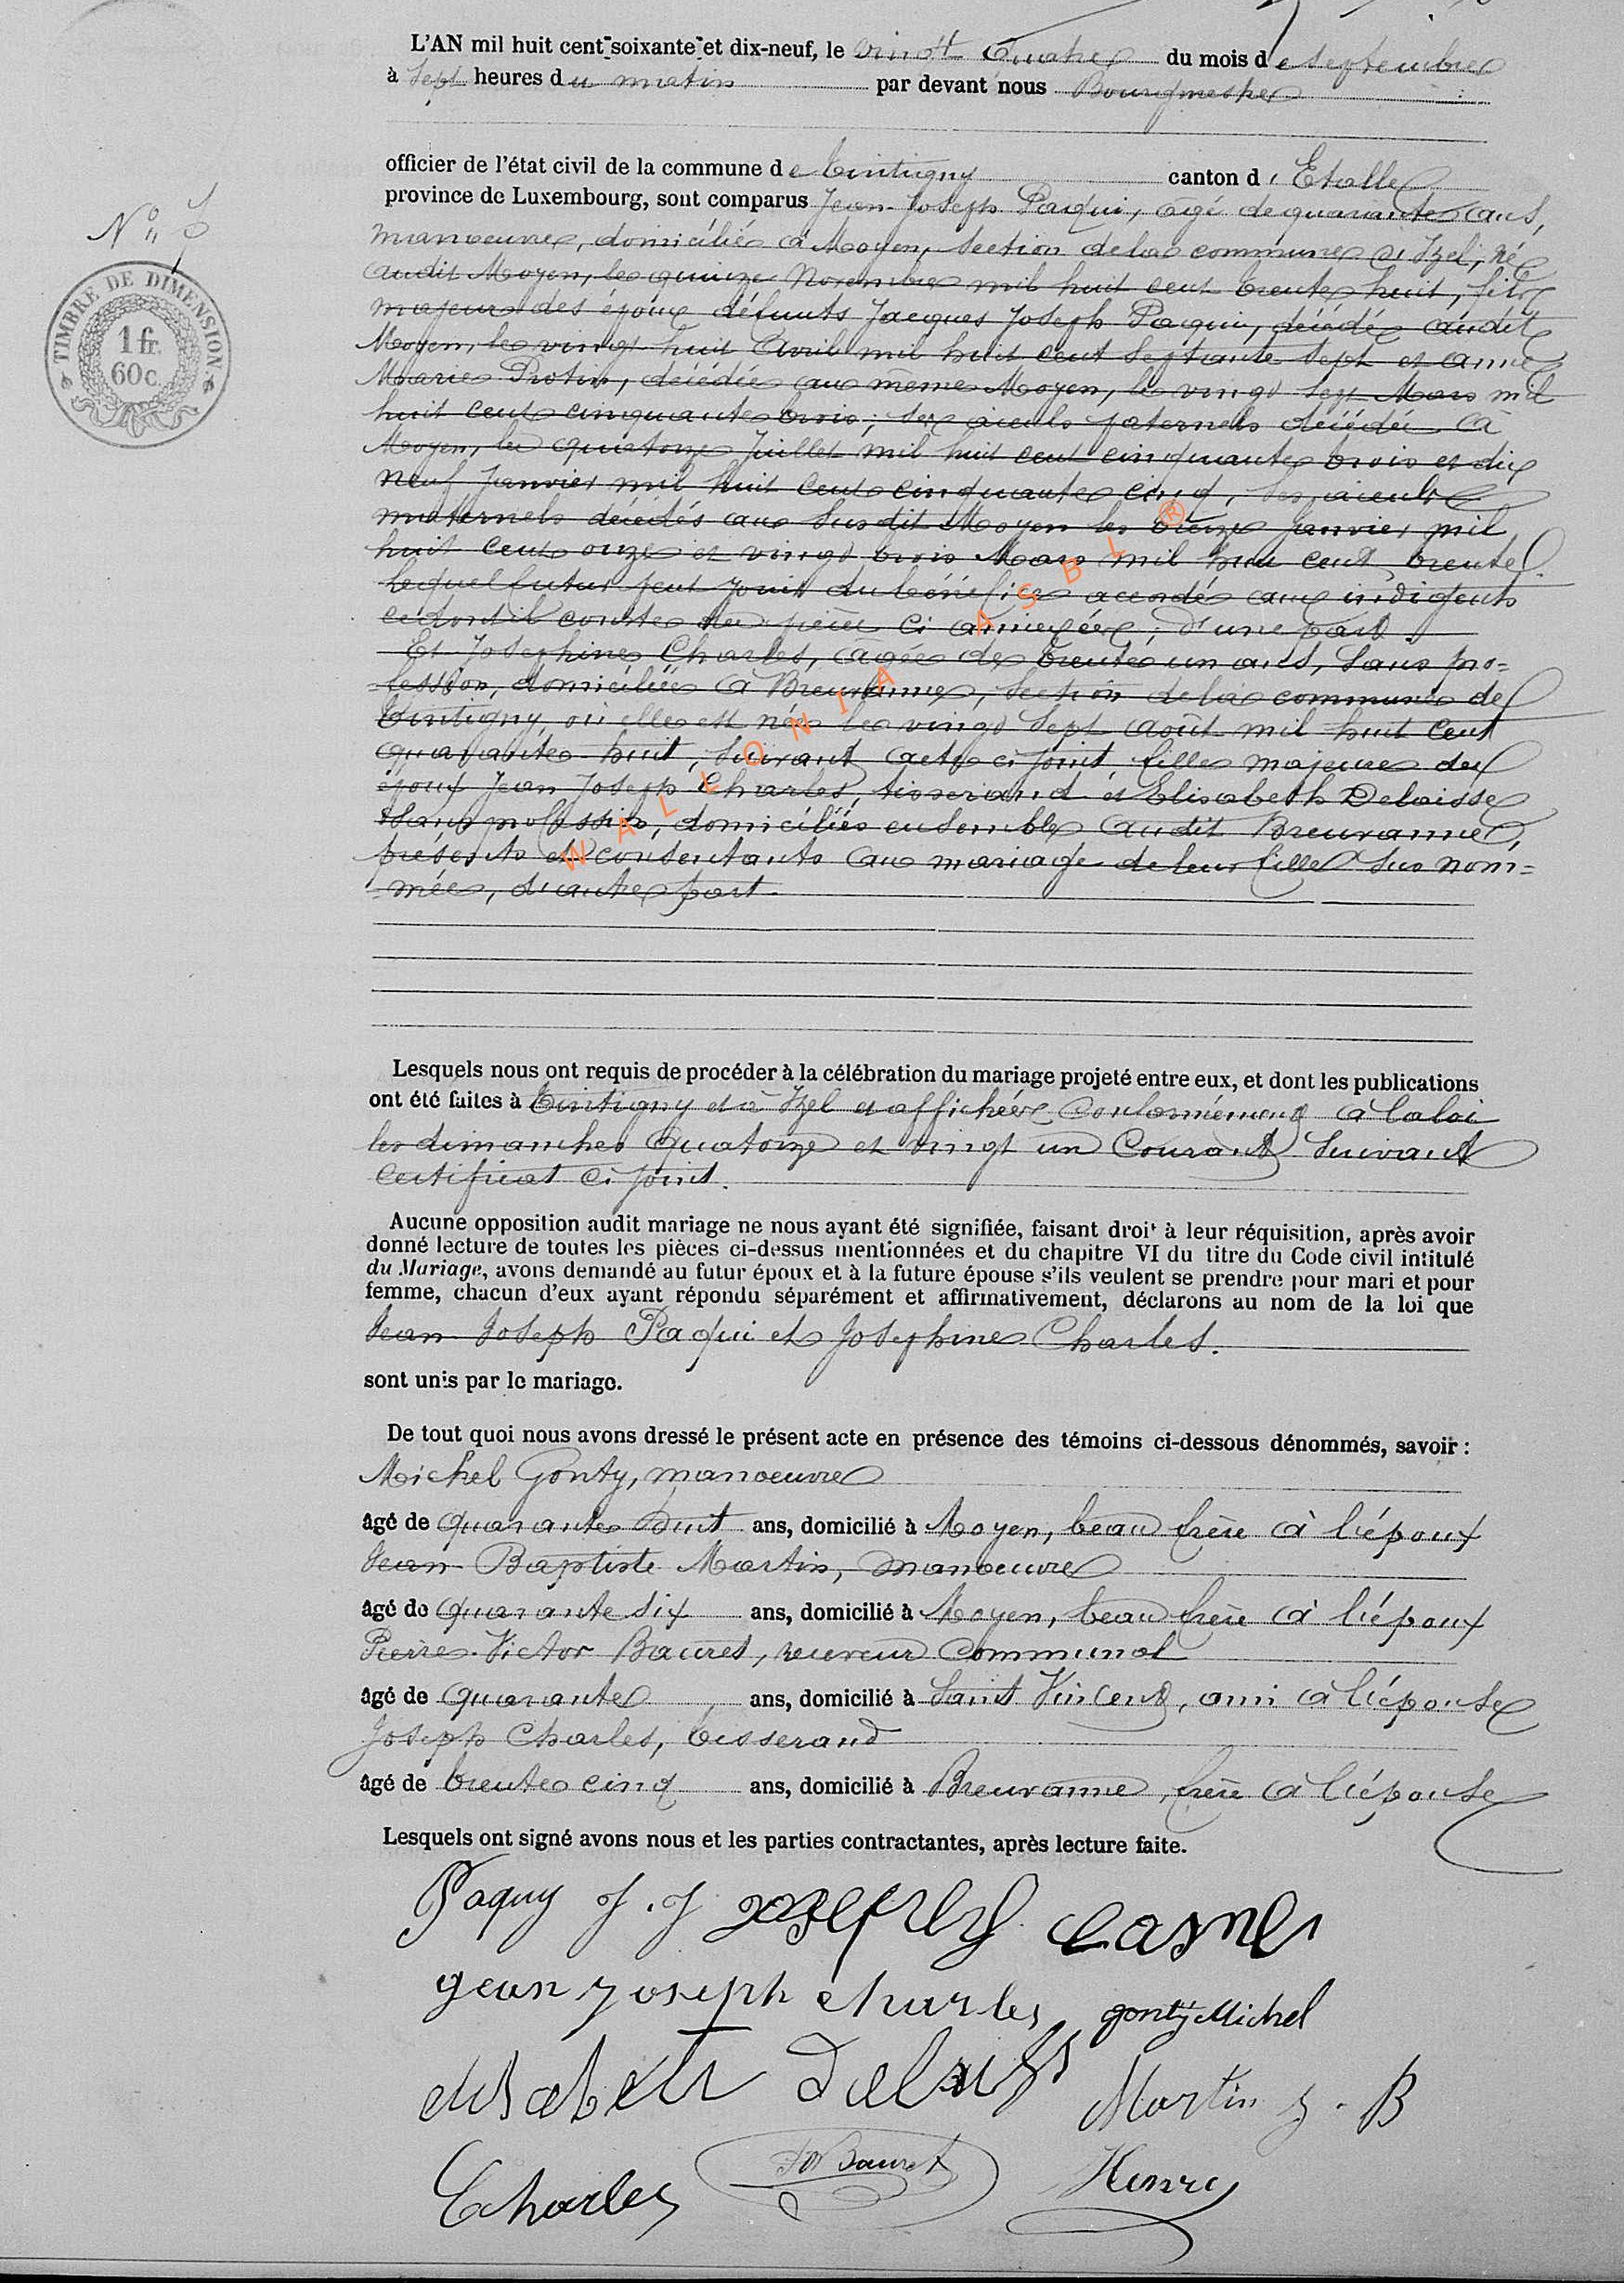 L'AN mil huit cent soixante et dix-neuf, le vingt quatre du mois de septembre
à sept heures du matin par devant nous Bourgmestre
officier de l'état civil de la commune de Tintigny canton d'Etalle
province de Luxembourg, sont comparus Jean Joseph Paqui, âgé de quarante ans,
N° 5
manoeuvre, domicilié à Moyen, section de la commune d'Izel, né
TIMBRE DE DIMENSION.
1 fr.
60 c.
audit Moyen, le quinze Novembre mil huit cent trente huit, fils
majeur des époux défunts Jacques Joseph Paquin, décédé audit
Moyen, le vingt huit Avril mil huit cent septante sept et anne
Marie Protin, décédée au même Moyen, le vingt sept Mars mil
huit cent cinquante trois; ses aieuls paternels décédés à
Moyen, les quatorze Juillet mil huit cent cinquante trois et dix
neuf Janvier mil huit cent cinquante cinq, ses aieuls
maternels décédés au susdit Moyen les treize Janvier mil
huit cent onze et vingt trois Mars mil huit cent trente.
Lequel futur peut jouir du bénéfice accordé aux indigents
ce dont il conste des pièces ci annexées; d'une part.
Et Josephine Charles, âgée de trente un ans, sans pro=
=fession, domiciliée à Breuvanne, section de la commune de
Tintigny, où elle est née le vingt sept août mil huit cent
quarante-huit, suivant acte ci joint, fille majeure des
époux Jean Joseph Charles, tisserand et Elisabeth Delaisse
sans profession, domiciliés ensemble audit Breuvanne,
présents et consentants au mariage de leur fille sus nom=
=mée, d'autre part.
WALLONIA ASBL ®
Lesquels nous ont requis de procéder à la célébration du mariage projeté entre eux, et dont les publications
ont été faites à Tintigny et à Izel et affichées conformément à la loi
les dimanches quatorze et vingt un courant suivant
certificat ci joint.
Aucune opposition audit mariage ne nous ayant été signifiée, faisant droit à leur réquisition, après avoir
donné lecture de toutes les pièces ci-dessus mentionnées et du chapitre VI du titre du Code civil intitulé
du Mariage, avons demandé au futur époux et à la future épouse s'ils veulent se prendre pour mari et pour
femme, chacun d'eux ayant répondu séparément et affirmativement, déclarons au nom de la loi que
Jean Joseph Paqui et Josephine Charles.
sont unis par le mariage.
De tout quoi nous avons dressé le présent acte en présence des témoins ci-dessous dénommés, savoir :
Michel Gonty, manoeuvre
âgé de quarante huit ans, domicilié à Moyen, beau frère à l'époux
Jean Baptiste Martin, manoeuvre
âgé de quarante six ans, domicilié à Moyen, beau frère à l'époux
Pierre Victor Bauret, receveur communal
âgé de quarante ans, domicilié à Saint Vincent, ami à l'épouse
Joseph Charles, tisserand
âgé de trente cinq ans, domicilié à Breuvanne, frère à l'épouse
Lesquels ont signé avons nous et les parties contractantes, après lecture faite.
Paquy J. J
gean joseph charles gonty Michel
Martin J. B
Charles Bauret Henry